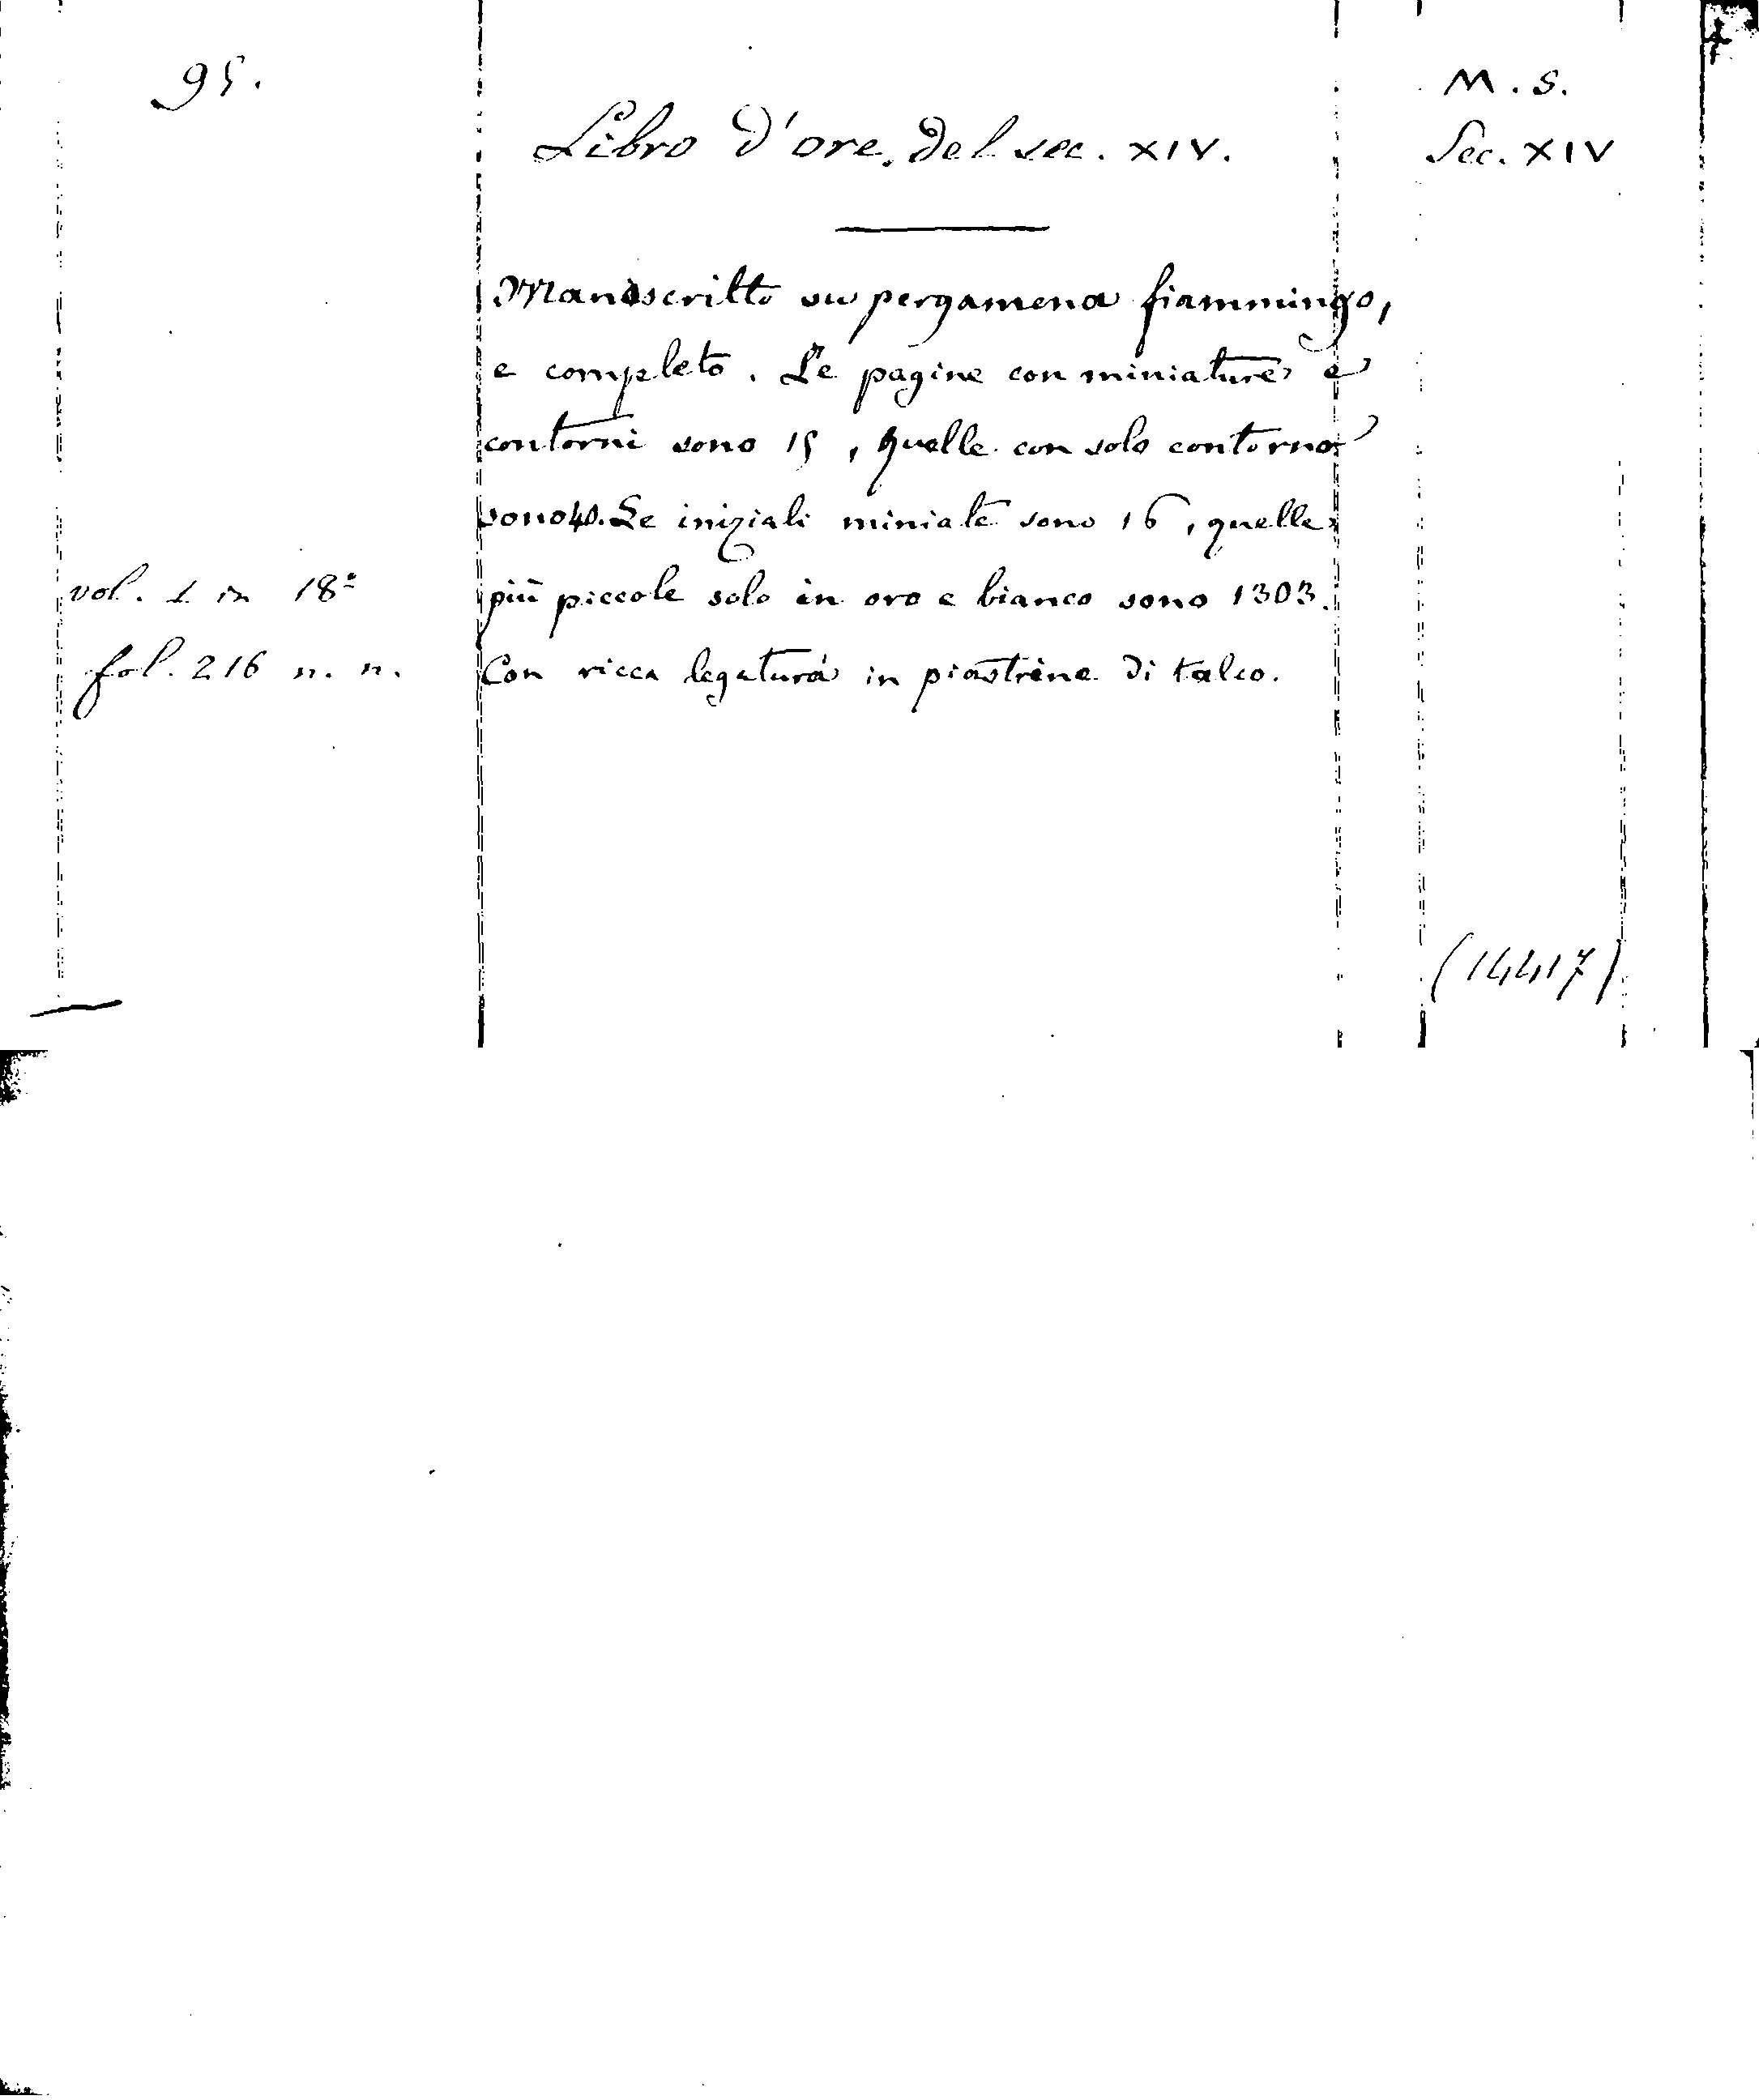 95.
M. S.
Libro d'ore, del sec. XIV.
Sec. XIV
Manoscritto su pergamena fiammingo,
e completo. Le pagine con miniature e
contorni sono 15, quelle con solo contorno
sono 40. Le iniziali miniate sono 16, quelle
vol. 1 in 18º
più piccole solo in oro e bianco sono 1303.
fol. 216 n. n.
Con ricca legatura in piastrine di talco.
(14417)